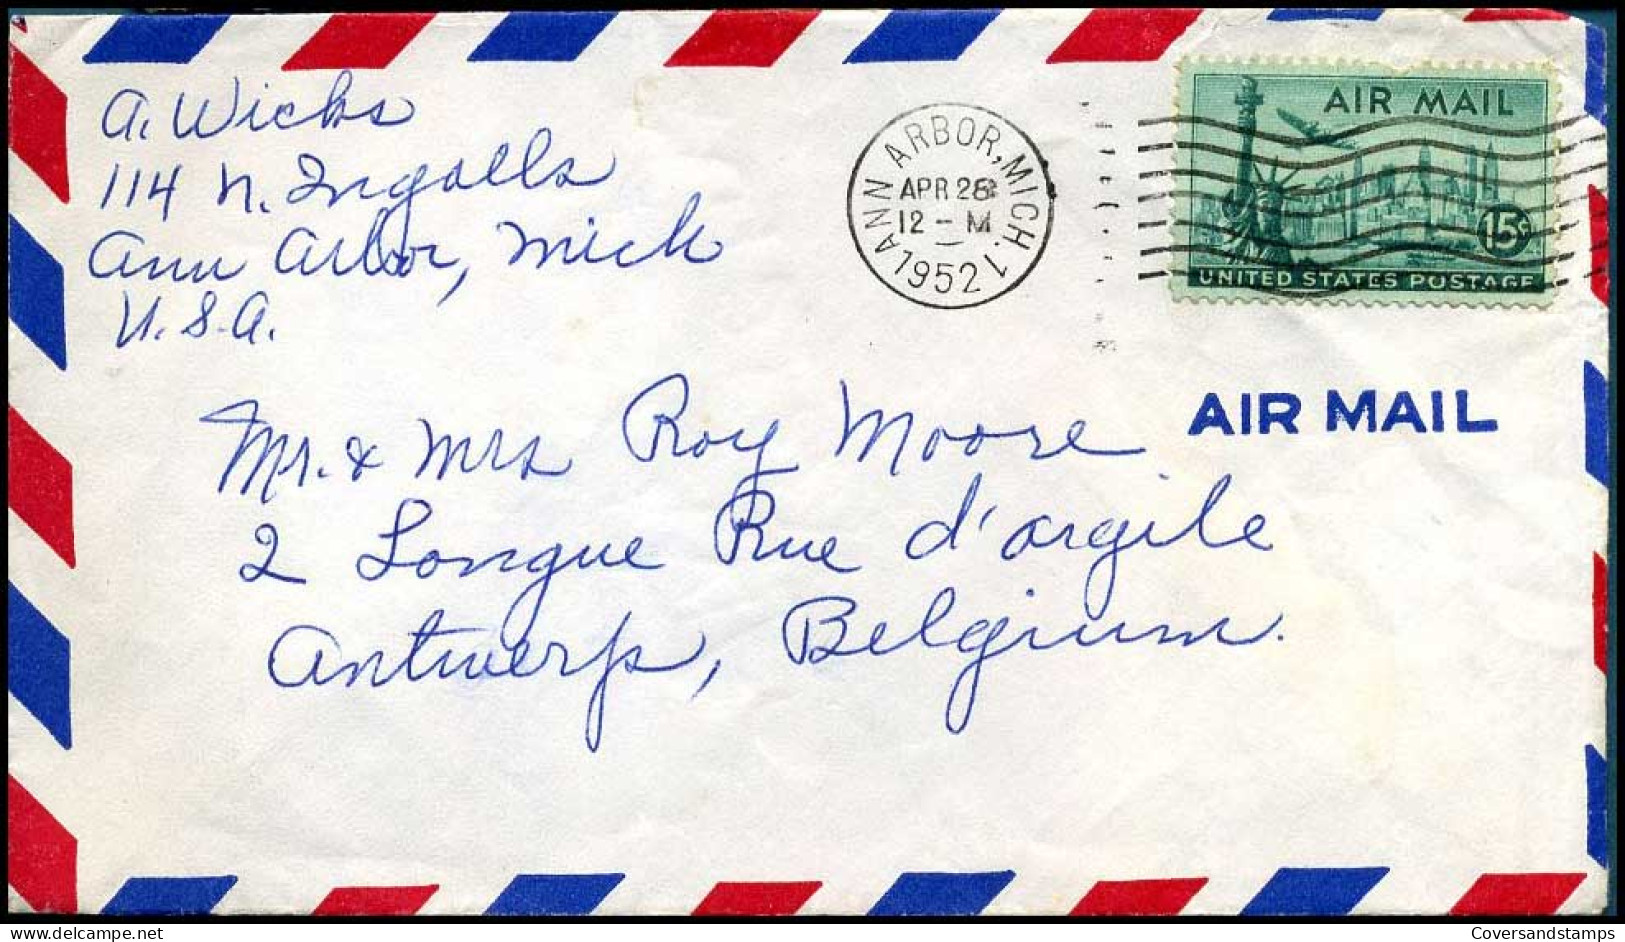 A. Wicks
114 N. Ingalls
Ann Arbor, Mich
U.S.A.
ANN ARBOR, MICH. 1
APR 28
12 - M
1952
AIR MAIL
15¢
UNITED STATES POSTAGE
AIR MAIL
Mr. & Mrs Roy Moore
2 Longue Rue d'argile
Antwerp, Belgium.
www.delcampe.net
Coversandstamps